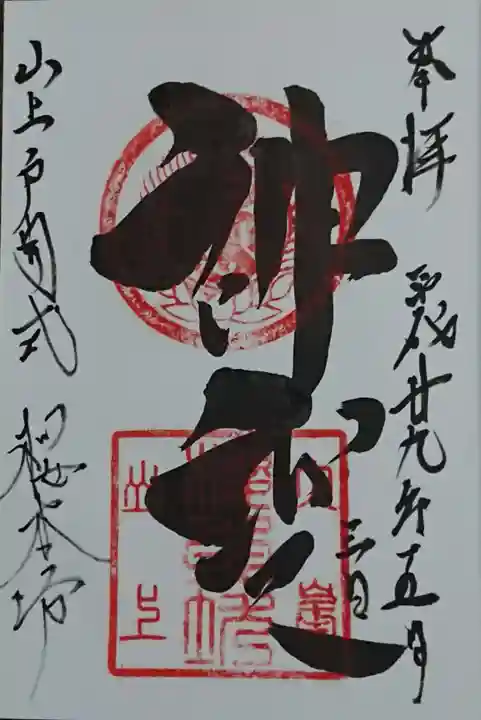 奉拝
平成廿九年五月
三日
神変
山上戸開式 櫻本坊